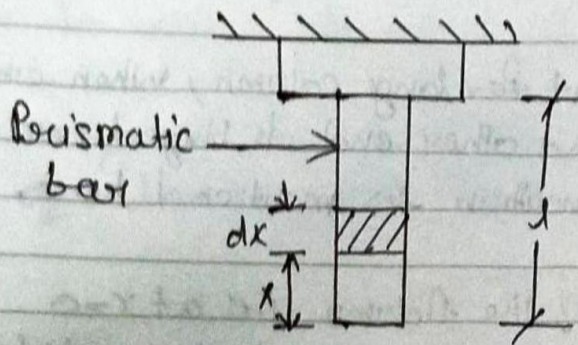 Prismatic
bar
dx
x
l